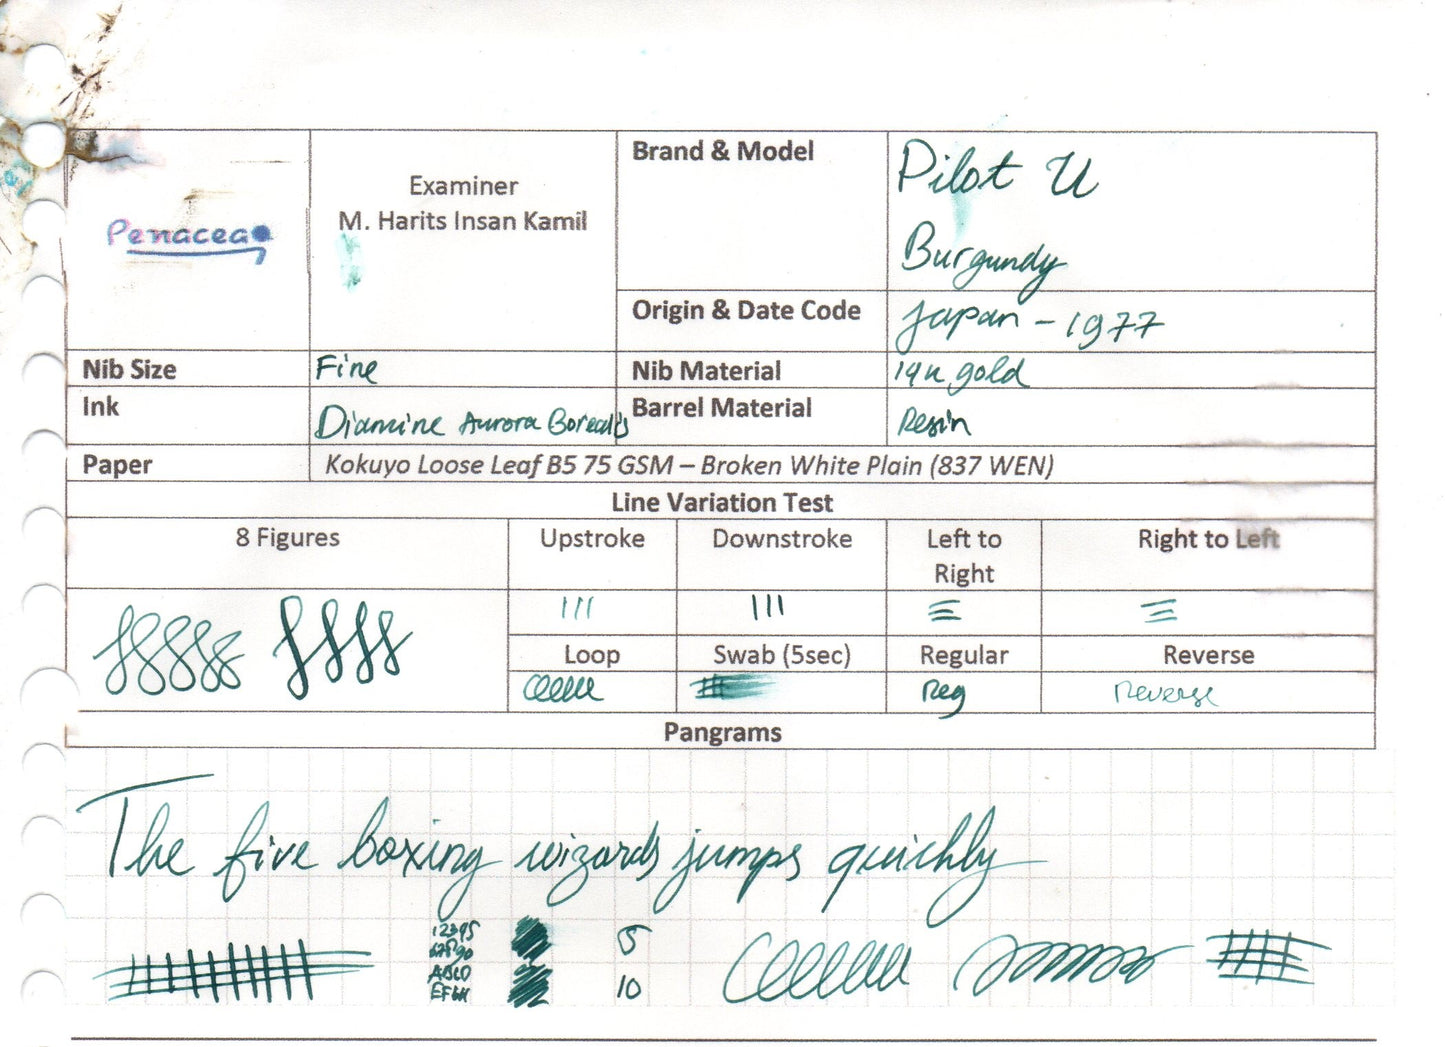 Penacea
Examiner
M. Harits Insan Kamil
Brand & Model
Pilot U
Burgundy
Origin & Date Code
Japan - 1977
Nib Size
Fine
Nib Material
14k gold
Ink
Diamine Aurora Borealis
Barrel Material
Resin
Paper
Kokuyo Loose Leaf B5 75 GSM – Broken White Plain (837 WEN)
Line Variation Test
8 Figures
Upstroke
Downstroke
Left to
Right
Right to Left
Loop
Swab (5sec)
Regular
Reverse
Reg
Reverse
Pangrams
The five boxing wizards jumps quickly
12345
67890
ABCD
EFGH
5
10